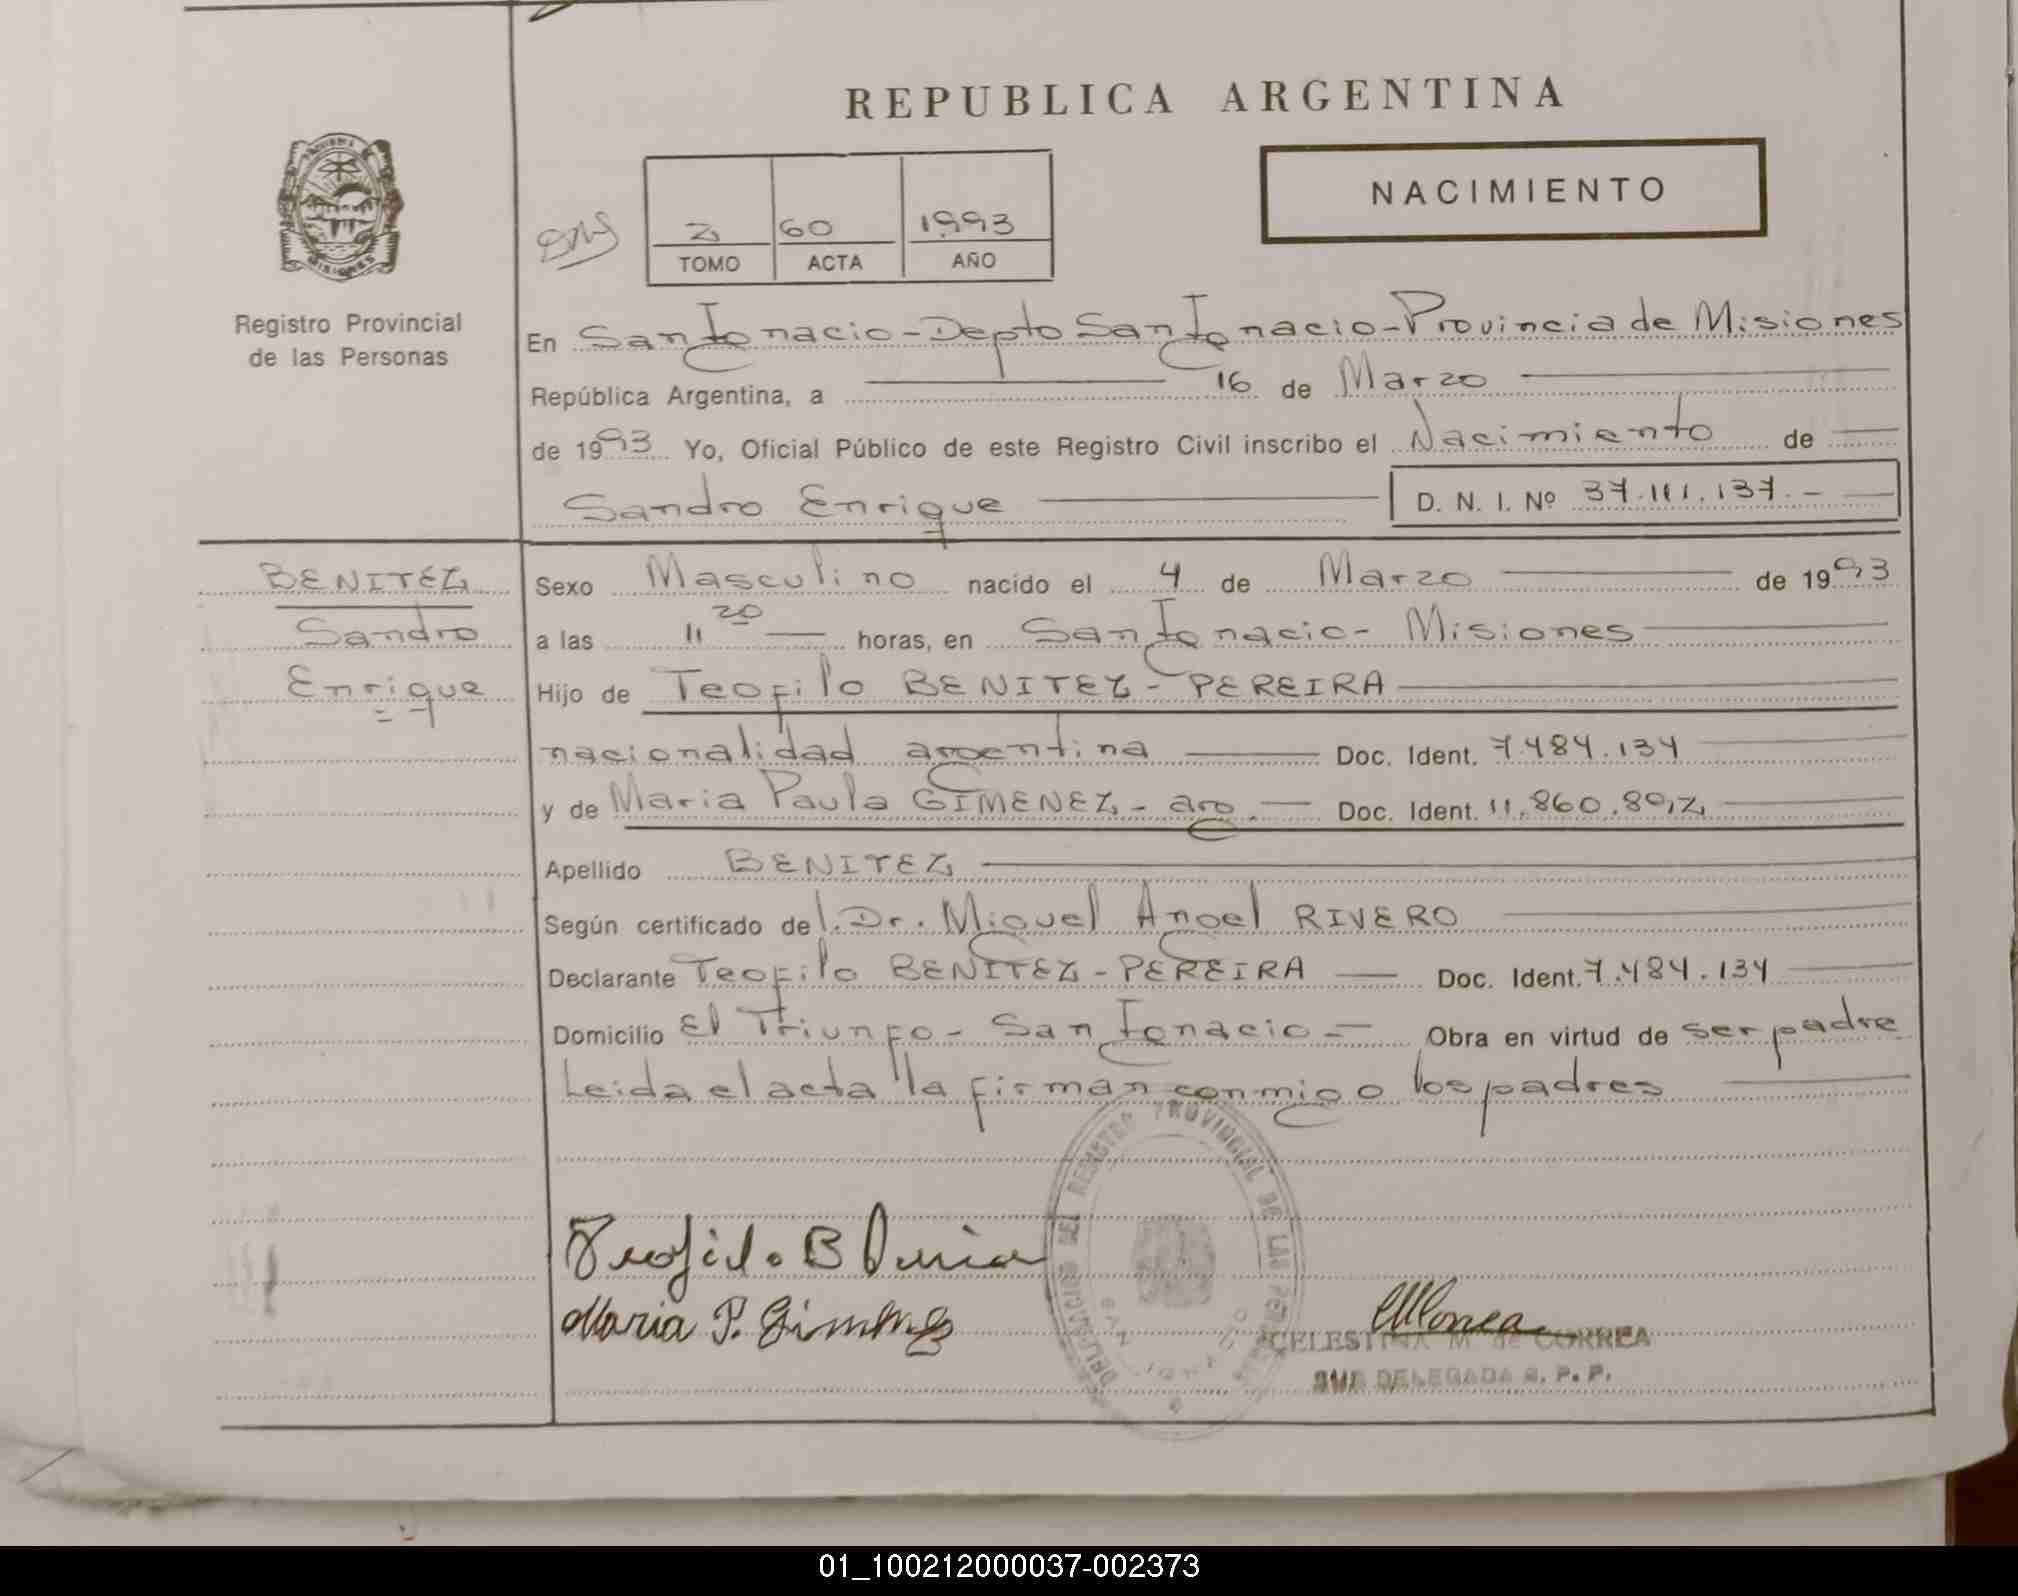 REPUBLICA ARGENTINA
NACIMIENTO
2 60 1993
TOMO ACTA AÑO
Registro Provincial
de las Personas
En San Ignacio - Depto San Ignacio - Provincia de Misiones
República Argentina, a 16 de Marzo
de 1993 Yo, Oficial Público de este Registro Civil inscribo el Nacimiento de
Sandro Enrique D. N. I. Nº 37.111.137.-
BENITEZ
Sandro
Enrique
Sexo Masculino nacido el 4 de Marzo de 1993
a las 11 20 horas, en San Ignacio - Misiones
Hijo de Teofilo BENITEZ - PEREIRA
nacionalidad argentina Doc. Ident. 7.484.134
y de Maria Paula GIMENEZ - arg. Doc. Ident. 11.860.802
Apellido BENITEZ
Según certificado del Dr. Miguel Angel RIVERO
Declarante Teofilo BENITEZ - PEREIRA Doc. Ident. 7.484.134
Domicilio El Triunfo - San Ignacio - Obra en virtud de ser padre
Leida el acta la firman conmigo los padres
DELEGACION DEL REGISTRO PROVINCIAL DE LAS PERSONAS
SAN IGNACIO
Teofilo B Pereira
Maria P. Gimenez
CELESTINA M. de CORREA
SUB DELEGADA R. P. P.
01_100212000037-002373